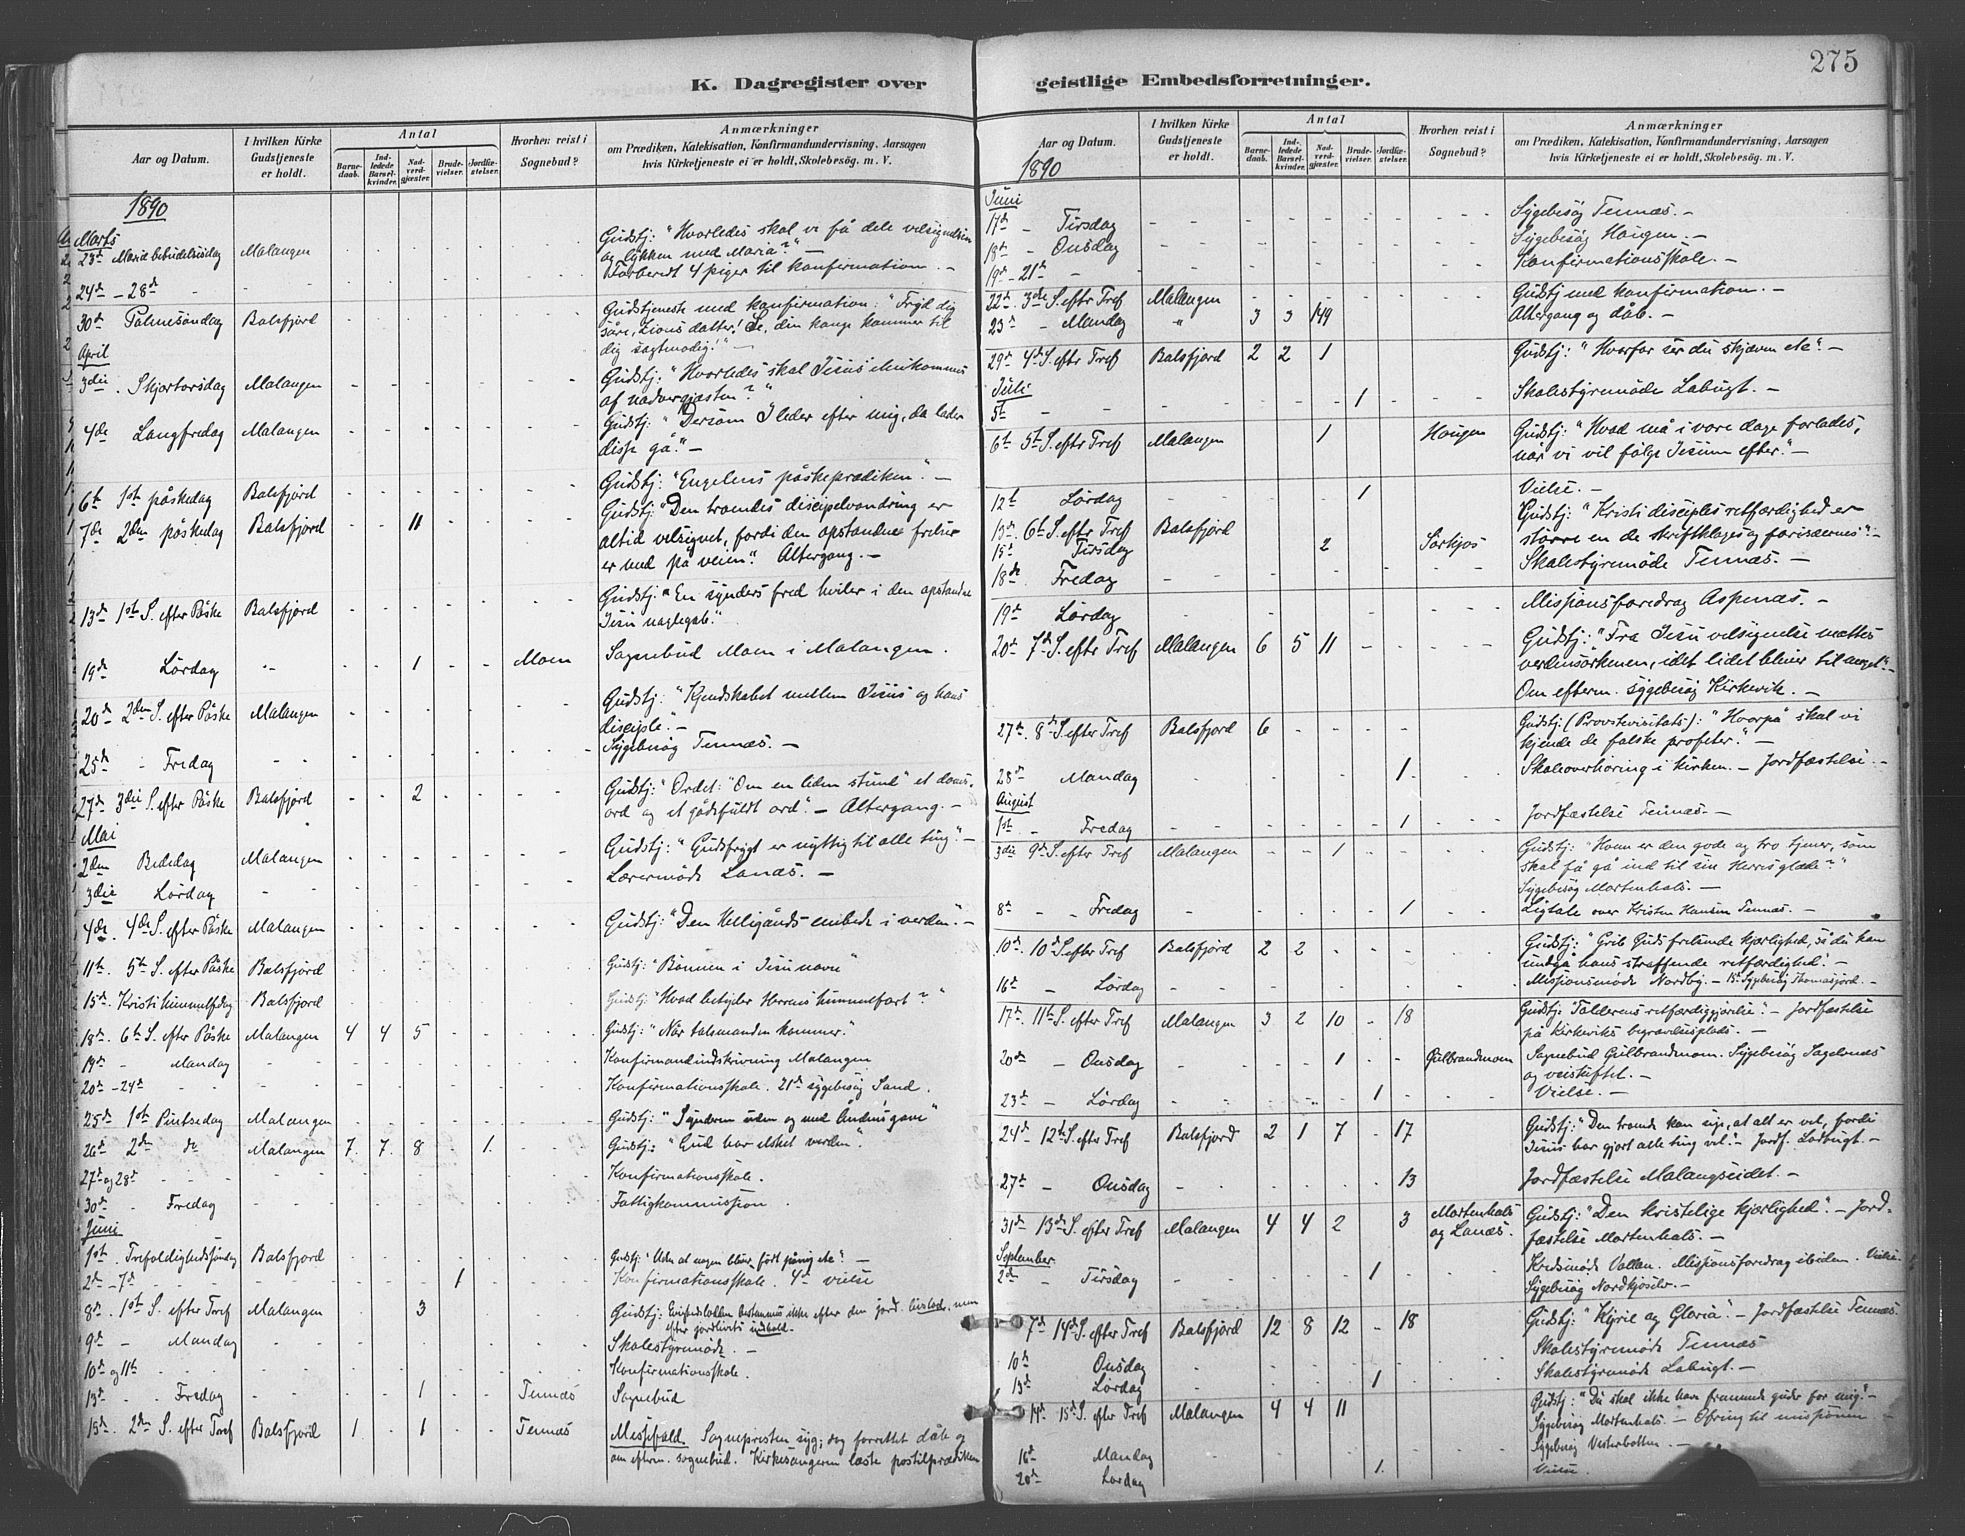 275
K. Dagregister over geistlige Embedsforretninger.
Aar og Datum.
I hvilken Kirke Gudstjeneste er holdt.
Antal
Barne-daab.
Ind-ledede Barsel-kvinder.
Nad-verd-gjæster.
Brude-vielser.
Jordfæ-stelser.
Hvorhen reist i Sognebud?
Anmærkninger
om Prædiken, Katekisation, Konfirmandundervisning, Aarsagen
hvis Kirketjeneste ei er holdt, Skolebesög. m. V.
1890
Marts
23de Mariæ bebudelsesdag Malangen Gudstj: "Hvorledes skal vi få dele velsignelsen
og lykken med Maria?" –
24de – 28de Forberedt 4 piger til konfirmation. –
30te Palmesöndag Balsfjord Gudstjeneste med konfirmation: "Fryd dig
såre, Zions datter! Se, din konge kommer til
dig sagtmodig!" –
April
3die Skjærtorsdag Malangen Gudstj: "Hvorledes skal Jesus ihukommes
af nadvergjæsten?"
4de Langfredag Malangen Gudstj: "Dersom I leder efter mig, da lader
disse gå." –
6te 1ste påskedag Balsfjord Gudstj: "Engelens påskeprædiken". –
7de 2den påskedag Balsfjord 11 Gudstj: "Den troendes discipelvandring er
altid velsignet, fordi den opstandne frelser
er med på veien". Altergang. –
13de 1ste S. efter Påske Balsfjord Gudstj: "En synders fred hviler i den opstandne
Jesu naglegab."
19de Lördag 1 Moen Sognebud Moen i Malangen.
20de 2den S. efter Påske Malangen Gudstj: "Kjendskabet mellem Jesus og hans
disciple." –
25de Fredag Sygebesög Tennæs. –
27de 3die S. efter Påske Balsfjord 2 Gudstj: "Ordet: "Om en liden stund" et
ord og et ord". – Altergang. –
Mai
2den Bededag Malangen Gudstj: "Gudsfrygt er nyttig til alle ting". –
3die Lördag Lærermöde Lanæs. –
4de 4de S. efter Påske Malangen Gudstj: "Den Helligånds embede i verden". –
11te 5te S. efter Påske Balsfjord Gudstj: "Bönnen i Jesu navn"
15de Kristi himmelfdag Balsfjord Gudstj: "Hvad betyder Herrens himmelfart?"
18de 6te S. efter Påske Malangen 4 4 5 Gudstj: "Når talsmanden kommer."
19de Mandag Konfirmandindskrivning Malangen
20de – 24de Konfirmationsskole. 21de sygebesög Sand.
25de 1ste Pintsedag Malangen Gudstj: "Synderen uden og med Åndens gave"
26de 2den do Malangen 7 7 8 1 Gudstj: "Gud har elsket verden".
27de og 28de Konfirmationsskole.
30te Fredag Fattigkommission.
Juni
1ste Trefoldighedssöndag Balsfjord Gudstj: "Uden at nogen bliver födt påny etc". –
2den – 7de 1 Konfirmationsskole. 4de vielse
8de 1ste S. efter Tref Malangen 3 Gudstj: bestemmes ikke efter den jord. men
efter jordlivets indhold.
9de Mandag Skolestyremöde. –
10de og 11te Konfirmationsskole.
13de Fredag 1 Tennæs Sognebud
15de 2den S. efter Tref Balsfjord 1 1 Tennæs Messefald. Sognepresten syg; dog forrettet dåb og
om efterm. sognebud. Kirkesangeren læste postilprædiken
Aar og Datum.
I hvilken Kirke Gudstjeneste er holdt.
Antal
Barne-daab.
Ind-ledede Barsel-kvinder.
Nad-verd-gjæster.
Brude-vielser.
Jordfæ-stelser.
Hvorhen reist i Sognebud?
Anmærkninger
om Prædiken, Katekisation, Konfirmandundervisning, Aarsagen
hvis Kirketjeneste ei er holdt, Skolebesög. m. V.
1890
Juni
17de Tirsdag Sygebesög Tennæs. –
18de Onsdag Sygebesög Haugen. –
19de – 21de Konfirmationsskole. –
22de 3die S. efter Tref Malangen Gudstj med konfirmation. –
23de Mandag " 3 3 149 Altergang og dåb. –
29de 4de S. efter Tref Balsfjord 2 2 1 Gudstj: "Hvorfor ser du skjæven etc". –
Juli
5te 1 Skolestyremöde Labugt. –
6te 5te S. efter Tref Malangen 1 Haugen Gudstj: "Hvad må i vore dage forlades,
når vi vil fölge Jesum efter." –
12te Lördag 1 Vielse. –
13de 6te S. efter Tref Balsfjord Gudstj: "Kristi disciples retfærdighed er
15de Tirsdag 2 Sörkjos större en de skriftkloges og farisæernes". –
18de Fredag Skolestyremöde Tennæs. –
19de Lördag Missionsforedrag Aspenæs. –
20de 7de S. efter Tref Malangen 6 5 11 Gudstj: "Fra Jesu velsignelse mættes
verdensörkenen, idet lidet bliver til meget". –
Om efterm. sygebesög Kirkevik. –
27de 8de S. efter Tref Balsfjord 6 Gudstj: (Provstevisitats): "Hvorpå skal vi
kjende de falske profeter." –
28de Mandag 1 Skoleoverhöring i kirken. – Jordfæstelse. –
August
1ste Fredag 1 Jordfæstelse Tennæs. –
3die 9de S. efter Tref Malangen 1 Gudstj: "Hvem er den gode og tro tjener, som
skal få gå ind til sin Herres glæde?"
Sygebesög Mortenhals. –
8de Fredag 1 Ligtale over Kristen Hansen Tennæs. –
10de 10de S. efter Tref Balsfjord 2 2 Gudstj: "Grib Guds frelsende kjærlighed, så du kan
undgå hans straffende retfærdighed". –
16de Lördag Missionsmöde Nordby. – 15de Sygebesög Thomasjord. –
17de 11te S. efter Tref Malangen 3 2 10 18 Gudstj: "Tolderens retfærdiggjörelse". – Jordfæstelse
på Kirkeviks begravelsesplads. –
20de Onsdag 1 Gulbrandmoen Sognebud Gulbrandmoen. Sygebesög Sagelvnæs
og veiskiftet. –
23de Lördag 1 Vielse. –
24de 12te S. efter Tref Balsfjord 2 1 7 17 Gudstj: "Den troende kan sige, at alt er vel, fordi
Jesus har gjort alle ting vel". – Jordf. Ladbugt. –
27de Onsdag 13 Jordfæstelse Malangseidet. –
31te 13de S. efter Tref Malangen 4 4 2 3 Mortenhals og Lanæs. Gudstj: "Den kristelige kjærlighed". – Jord-
fæstelse Mortenhals. –
September
2den Tirsdag 1 Kredsmöde Vollan. Missionsforedrag ibiden. Vielse.
Sygebesög Nordkjosely. –
7de 14de S. efter Tref Balsfjord 12 8 12 18 Gudstj: "Kyrie og Gloria". – Jordfæstelse Tennæs.
10de Onsdag Skolestyremöde Tennæs
13de Lördag 1 Skolestyremöde Labugt. –
14de 15de S. efter Tref Malangen 4 4 11 Gudstj: "Du skal ikke have fremmede guder for mig". –
Sygebesög Mortenhals. – Ofring til missionen –
16de Mandag Sygebesög Vesterbotten. –
20de Lördag 1 Vielse